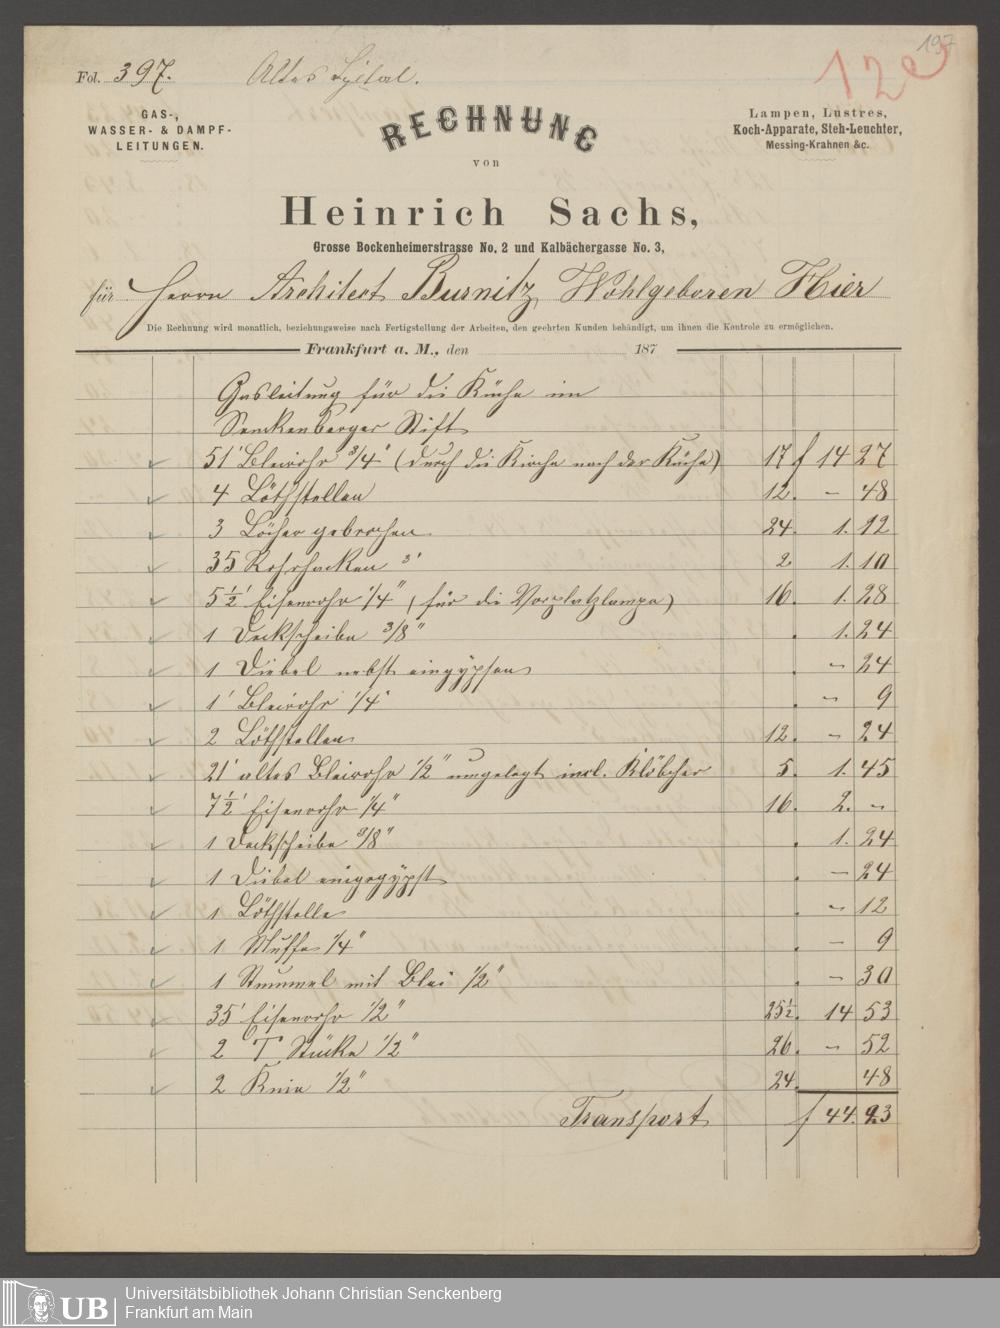 197
120
Fol. 397. Altes Spital.
GAS-,
WASSER- & DAMPF-
LEITUNGEN.
RECHNUNG
von
Lampen, Lustres,
Koch-Apparate, Steh-Leuchter,
Messing-Krahnen &c.
Heinrich Sachs,
Grosse Bockenheimerstrasse No. 2 und Kalbächergasse No. 3,
für Herrn Architect Burnitz, Wohlgeboren Hier
Die Rechnung wird monatlich, beziehungsweise nach Fertigstellung der Arbeiten, den geehrten Kunden behändigt, um ihnen die Kontrole zu ermöglichen.
Frankfurt a. M., den 187
Gasleitung für die Küche im
Senckenberger Stift
51' Bleirohr 3/4" (durch die Kirche nach der Küche) 17 f 14 27
4 Löthstellen 12. - 48
3 Löcher gebrochen 24. 1. 12
35 Rohrhacken 3' 2 1. 10
5 1/2' Eisenrohr 1/4" (für die Vorplatzlampe) 16. 1. 28
1 Deckscheibe 3/8" . 1. 24
1 Diebel nebst eingypsen . - 24
1' Bleirohr 1/4" . - 9
2 Löthstellen 12. - 24
21' altes Bleirohr 1/2" umgelegt incl. Klöbcher 5. 1. 45
7 1/2' Eisenrohr 1/4" 16. 2. -
1 Deckscheibe 3/8" . 1. 24
1 Diebel eingegypst . - 24
1 Löthstelle . - 12
1 Muffe 1/4" . - 9
1 Stummel mit Blei 1/2" . - 30
35' Eisenrohr 1/2" 25 1/2. 14 53
2 T Stücke 1/2" 26. - 52
2 Knie 1/2" 24. 48
Transport f 44. 23
UB
Universitätsbibliothek Johann Christian Senckenberg
Frankfurt am Main